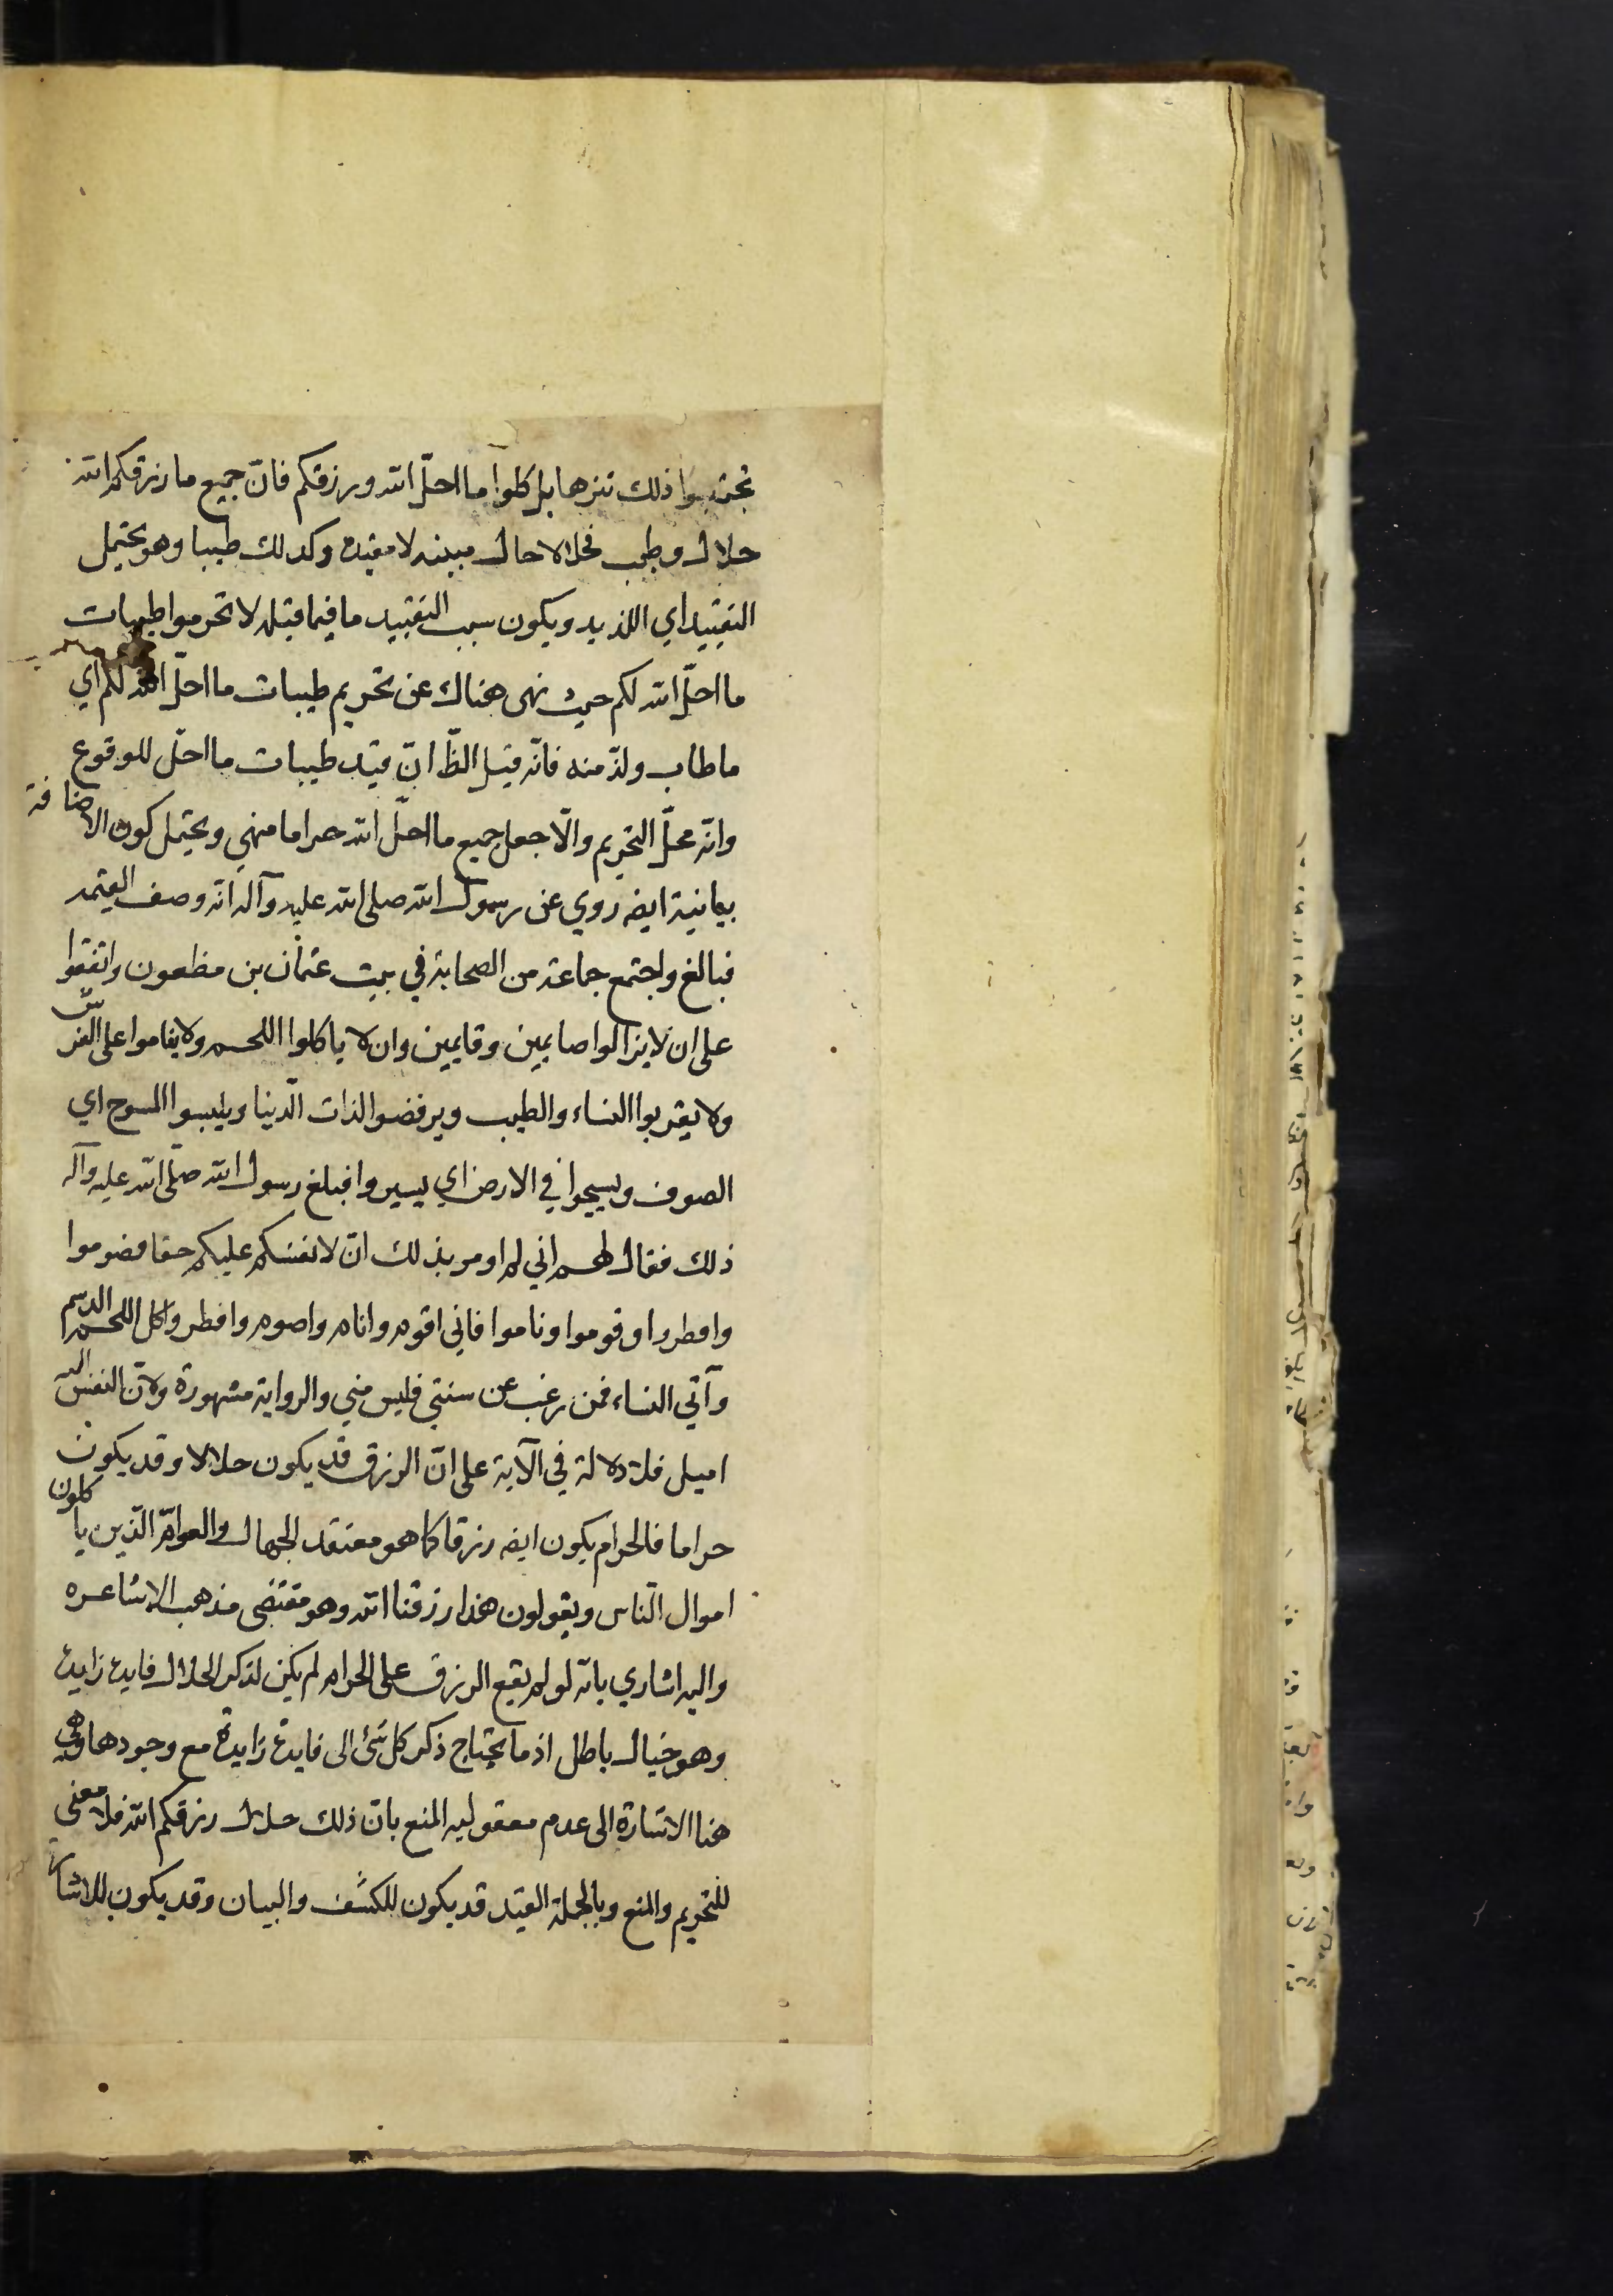 تجتنبوا ذلك تنزها بل كلوا ما احلّ الله ورزقكم فانّ جميع ما رزقكم الله
حلال وطيب فحلالا حال مبينه لا مقيده وكذلك طيبا وهو يحتمل
التقييد اي اللذيد ويكون سبب التقييد ما فيما قبله لا تحرموا طيبات
ما احلّ الله لكم حيث نهى هناك عن تحريم طيبات ما احلّ الله لكم اي
ما طاب ولذّ منه فانّه قيل الظّ انّ قيد طيبات ما احلّ للوقوع
وانّه محلّ التحريم والّا جعل جميع ما احلّ الله حراما منهي ويحتمل كون الاضافة
بيانية ايضه روي عن رسول الله صلى الله عليه وآله انّه وصف القيمة
فبالغ واجتمع جماعة من الصحابة في بيت عثمان بن مظعون واتفقوا
على ان لا يزالوا صايمين وقايمين وان لا ياكلوا اللحم ولا يناموا على الفرش
ولا يقربوا النساء والطيب ويرفضوا لذات الدّنيا ويلبسوا المسوح اي
الصوف ويسيحوا في الارض اي يسيروا فبلغ رسول الله صلّى الله عليه وآله
ذلك فقال لهم اني لم اومر بذلك انّ لانفسكم عليكم حقا فصوموا
وافطروا وقوموا وناموا فاني اقوم وانام واصوم وافطر واكل اللحم الدسم
وآتي النساء فمن رغب عن سنتي فليس مني والرواية مشهورة ولانّ النفس اليه
اميل فلا دلالة في الآية على انّ الرزق قد يكون حلالا وقد يكون
حراما فالحرام يكون ايضه رزقا كما هو معتقد الجهال والعوامّ الّذين ياكلون
اموال النّاس ويقولون هذا رزقنا الله وهو مقتضى مذهب الاشاعره
واليه اشار ي بانّه لو لم يقع الرزق على الحرام لم يكن لذكر الحلال فايدة زايدة
وهو خيال باطل اذ ما يحتاج ذكر كل شئ الى فايدة زايدة مع وجودها وهي
هنا الاشارة الى عدم معقوليه المنع بانّ ذلك حلال رزقكم الله فلا معنى
للتحريم والمنع وبالجملة القيد قد يكون للكشف والبيان وقد يكون للاشارة